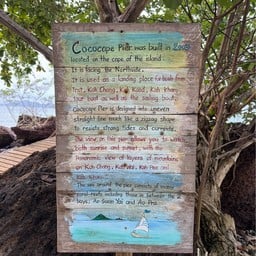 Cococape Pier was built in
located on the cape of the island.
It is facing the Northside.
It is used as a landing place for boats from
Trat, Koh Chang, Koh Kood, Koh Kham,
tour boat as well as the sailing boats.
Cococape Pier is designed into uneven
straight line much like a zigzag shape
to resists strong tides and currents.
The view on this pier allows you to watch
both sunrise and sunset, with the
Panoramic view of layers of mountains
on Koh Chang, Koh Wai, Koh Phee and
Koh
The sea around the pier consists of many
coral reefs including those in between the
bays: Ao Suan Yai and Ao Pra